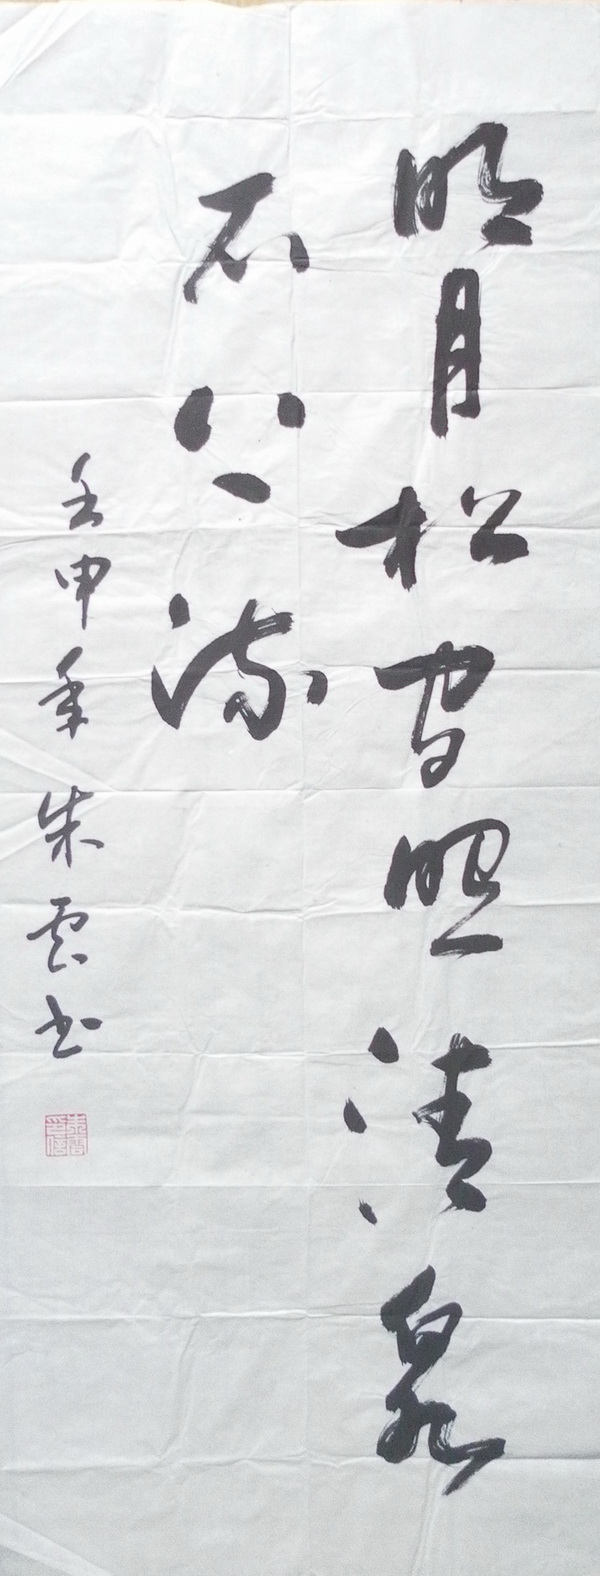 明月松间照清泉
石上流
壬申年朱云书